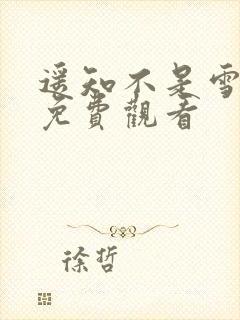 遥知不是雪
免費觀看
徐哲